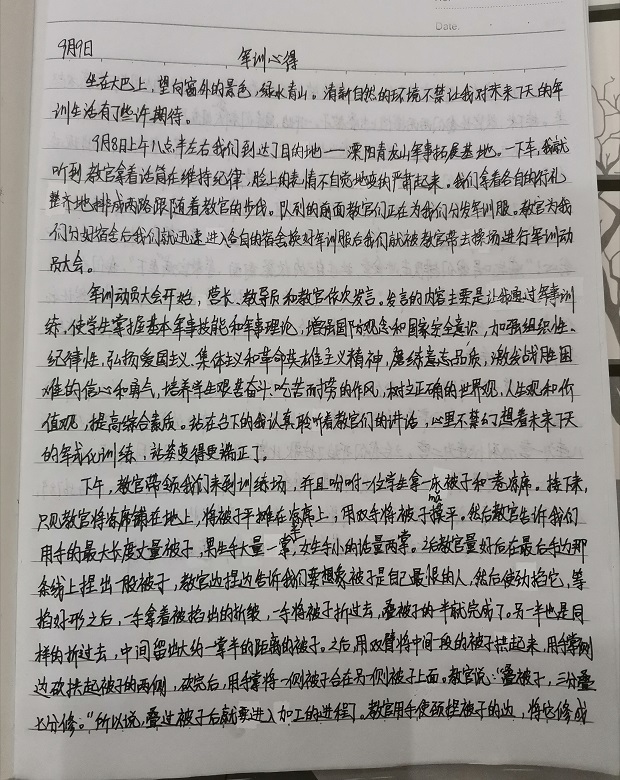 Date.
9月9日
军训心得
坐在大巴上，望向窗外的景色，绿水青山。清新自然的环境不禁让我对未来7天的军
训生活有了些许期待。
9月8日上午八点半左右我们到达了目的地——溧阳青龙山军事拓展基地。一下车，我就
听到教官拿着话筒在维持纪律，脸上的表情不自觉地变的严肃起来。我们拿着各自的行礼
整齐地排成两路跟随着教官的步伐。队列的前面教官们正在为我们分发军训服。教官为我
们分好宿舍后我们就迅速进入各自的宿舍换好军训服后我们就被教官带去操场进行军训动
员大会。
军训动员大会开始，营长、教导员和教官依次发言。发言的内容主要是让我通过军事训
练，使学生掌握基本军事技能和军事理论，增强国防观念和国家安全意识，加强组织性、
纪律性，弘扬爱国主义、集体主义和革命英雄主义精神，磨练意志品质，激发战胜困
难的信心和勇气，培养学生艰苦奋斗、吃苦耐劳的作风，树立正确的世界观，人生观和价
值观，提高综合素质。站在台下的我认真聆听着教官们的讲话，心里不禁幻想着未来7天
的军式化训练，站姿变得更端正了。
下午，教官带领我们来到训练场，并且吩咐一位学生拿一床被子和一卷凉席。接下来，
只见教官将凉席铺在地上，将被子平摊在凉席上，用双手将被子摸平。然后教官告诉我们
用手的最大长度丈量被子，男生手大量一掌，女生手小的话量两掌。之后教官量好后在最后手边那
条线上捏出一股被子，教官边捏边告诉我们要想象被子是自己最恨的人，然后使劲掐它，等
掐好形之后，一手拿着被掐出的折皱，一手将被子折过去，叠被子的一半就完成了。另一半也是同
样的折过去，中间留出大约一掌半的距离的被子。之后，用双臂将中间一段的被子拱起来，用手掌侧
边砍拱起被子的两侧，砍完后，用手掌将一侧被子合在另一侧被子上面。教官说：“叠被子，三分叠
七分修。”所以说，叠过被子后就要进入加工的进程了。教官用手使颈捏被子的边，将它修成